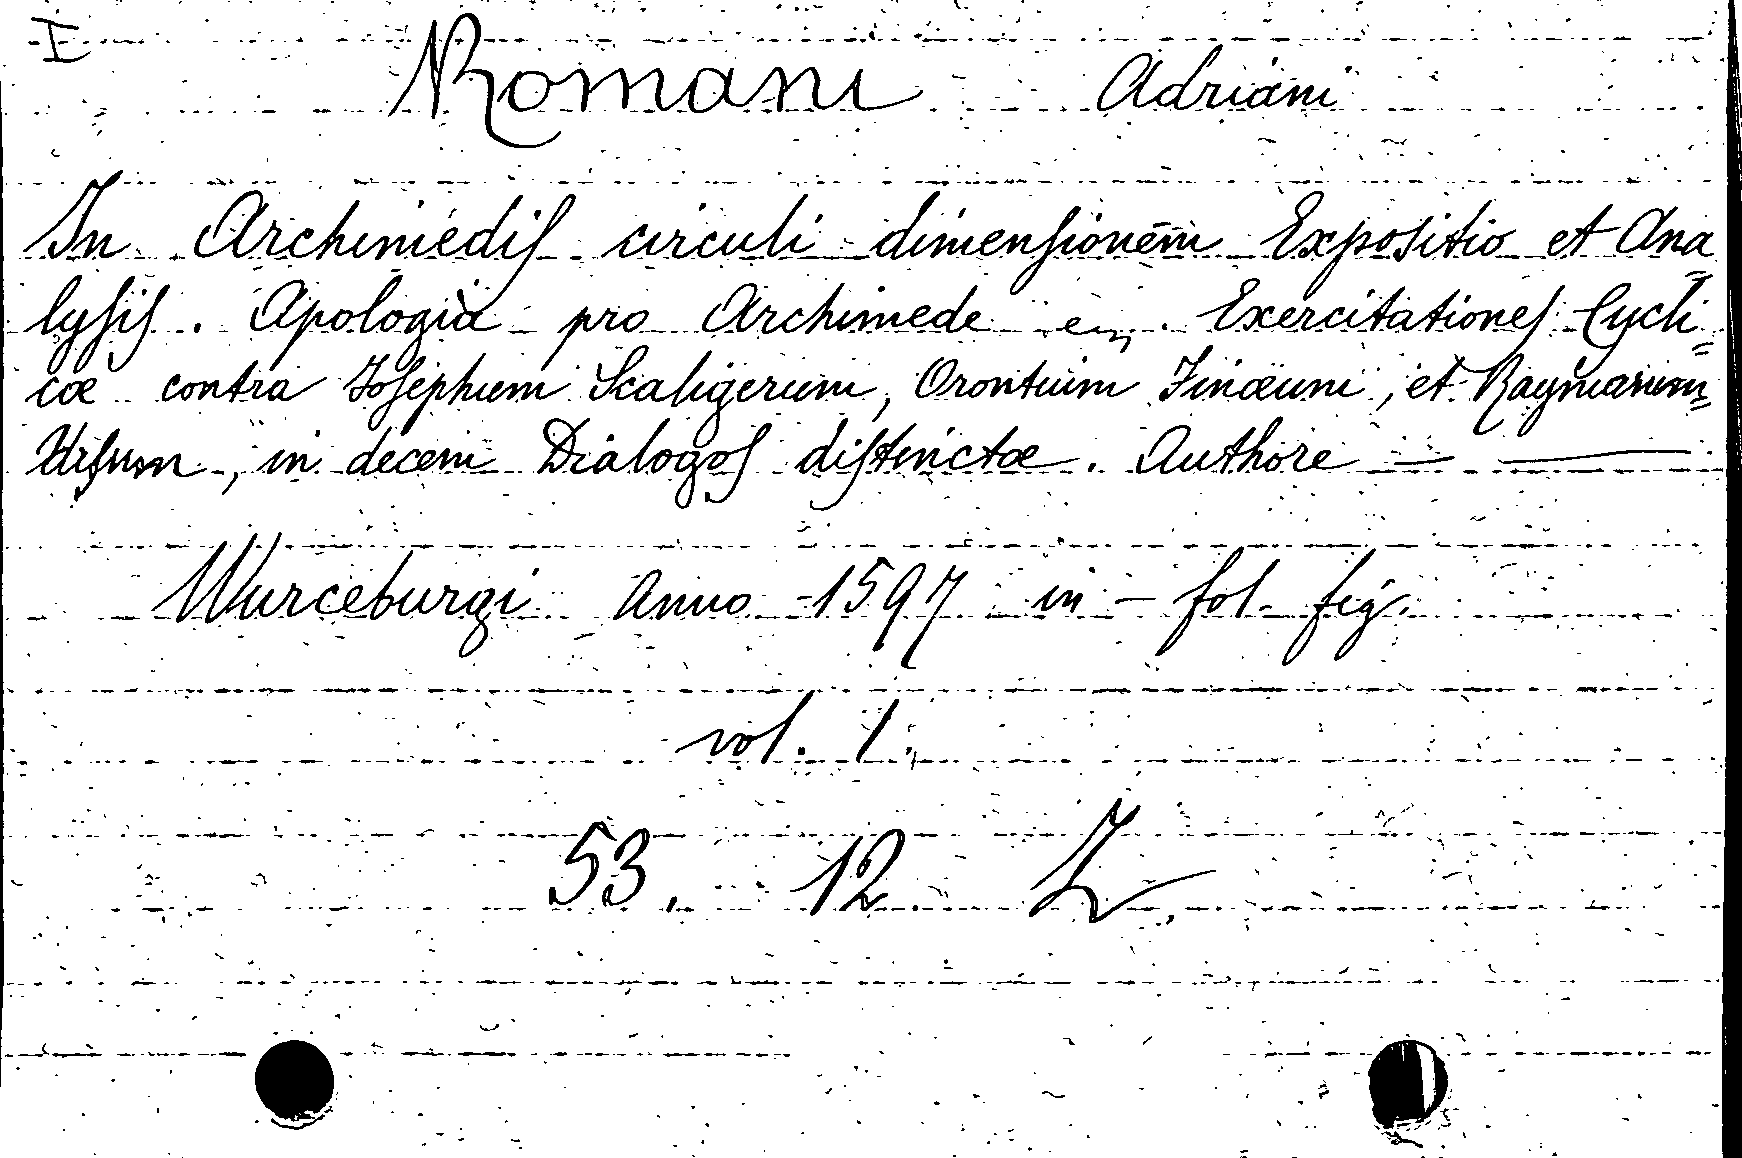 I
Romani Adriani
In Archimedis circuli dimensionem Expositio et Ana
lysis. Apologia pro Archimede Exercitationes Cycli=
cæ contra Josephum Scaligerum, Orontium Finæum, et Raymarum
Ursum, in decem Dialogos distinctæ. Authore — —
Wurceburgi Anno 1597 in-fol. fig.
vol. 1.
53. 12.